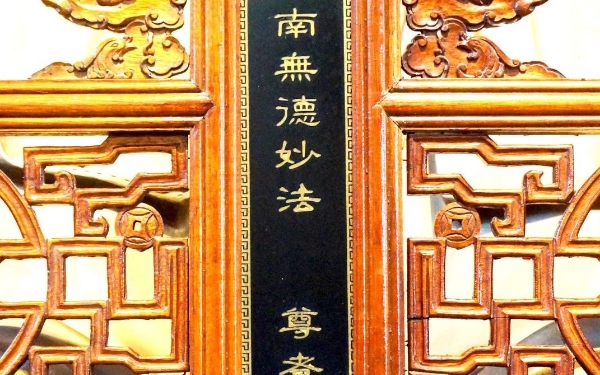 南無德妙法 尊者